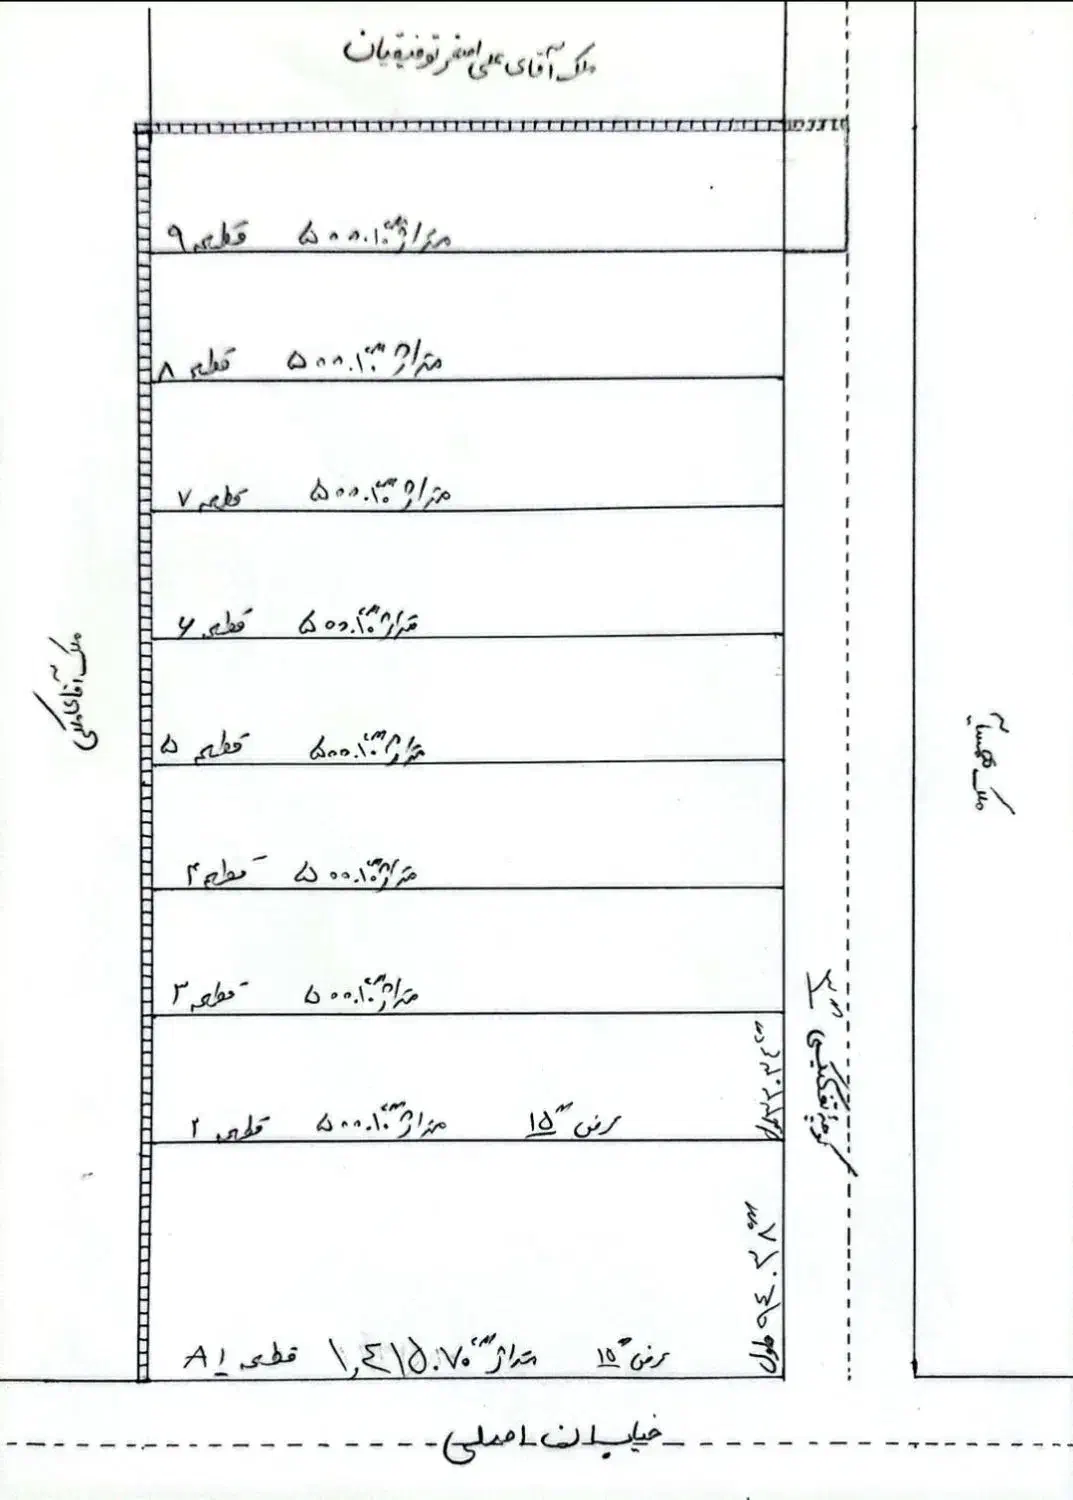 ملک آقای علی اصغر توفیقیان
قطعه ۹ متراژ ۵۰۰.۱۰ م
قطعه ۸ متراژ ۵۰۰.۱۰ م
قطعه ۷ متراژ ۵۰۰.۱۰ م
قطعه ۶ متراژ ۵۰۰.۱۰ م
قطعه ۵ متراژ ۵۰۰.۱۰ م
قطعه ۴ متراژ ۵۰۰.۱۰ م
قطعه ۳ متراژ ۵۰۰.۱۰ م
قطعه ۲ متراژ ۵۰۰.۱۰ م عرض ۱۵ م
طول ۳۳.۳۴ م
طول ۹۴.۳۸ م
قطعه A۱ متراژ ۱,۴۱۵.۷۰ م عرض ۱۵ م
کوچه تفکیکی
ملک آقای
ملک همسایه
خیابان اصلی